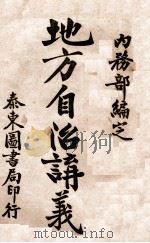 內務部編定
地方自治講義
泰東圖書局印行
www.mtoou.info